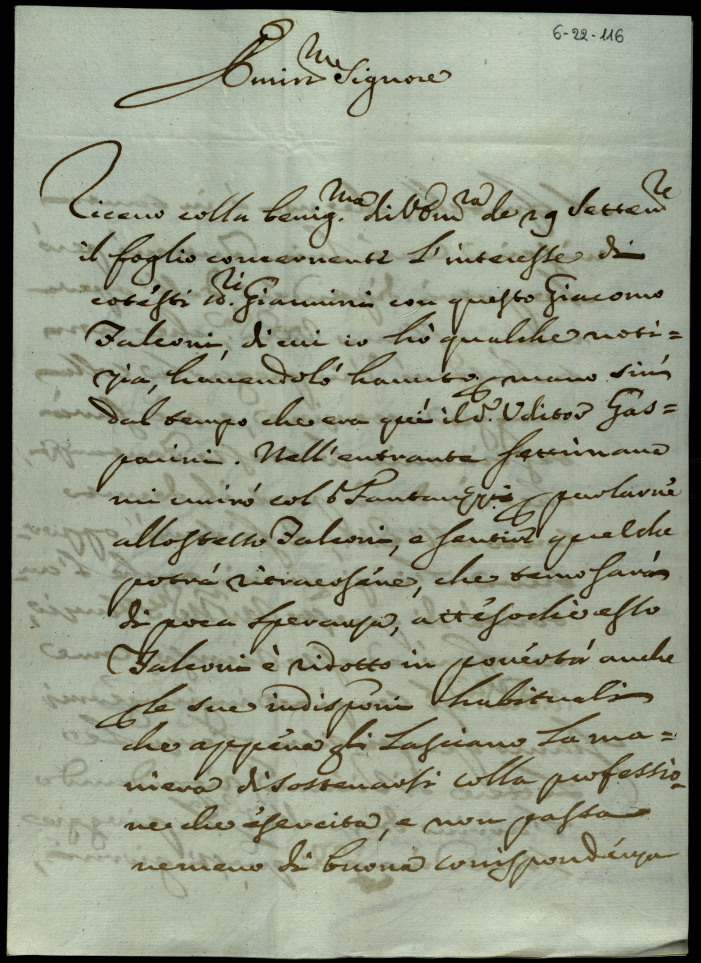 6-22-116
Emin.mo Signore
Ricevo colla benig.ma di V. Em.za de 29 Settem.re
il foglio concernente l'interesse di
cotesti SS.ri Giannini con questo Giacomo
Falconi, di cui io hò qualche noti=
zia, havendolo havuto p mano sin
dal tempo che era quì il S.r Uditor Gas=
parini. Nell'entrante settimana
mi unirò col S.r p parlarne
allo stesso Falconi, e sentir quel che
potrà ritraersene, che temo sarà
di poca speranza, attesoche esso
Falconi è ridotto in povertà anche
p le sue indispos.ni habituali
che appena gli lasciano la ma=
niera di sostenersi colla professio=
ne che esercita, e non passa
nemeno di buona corrispondenza